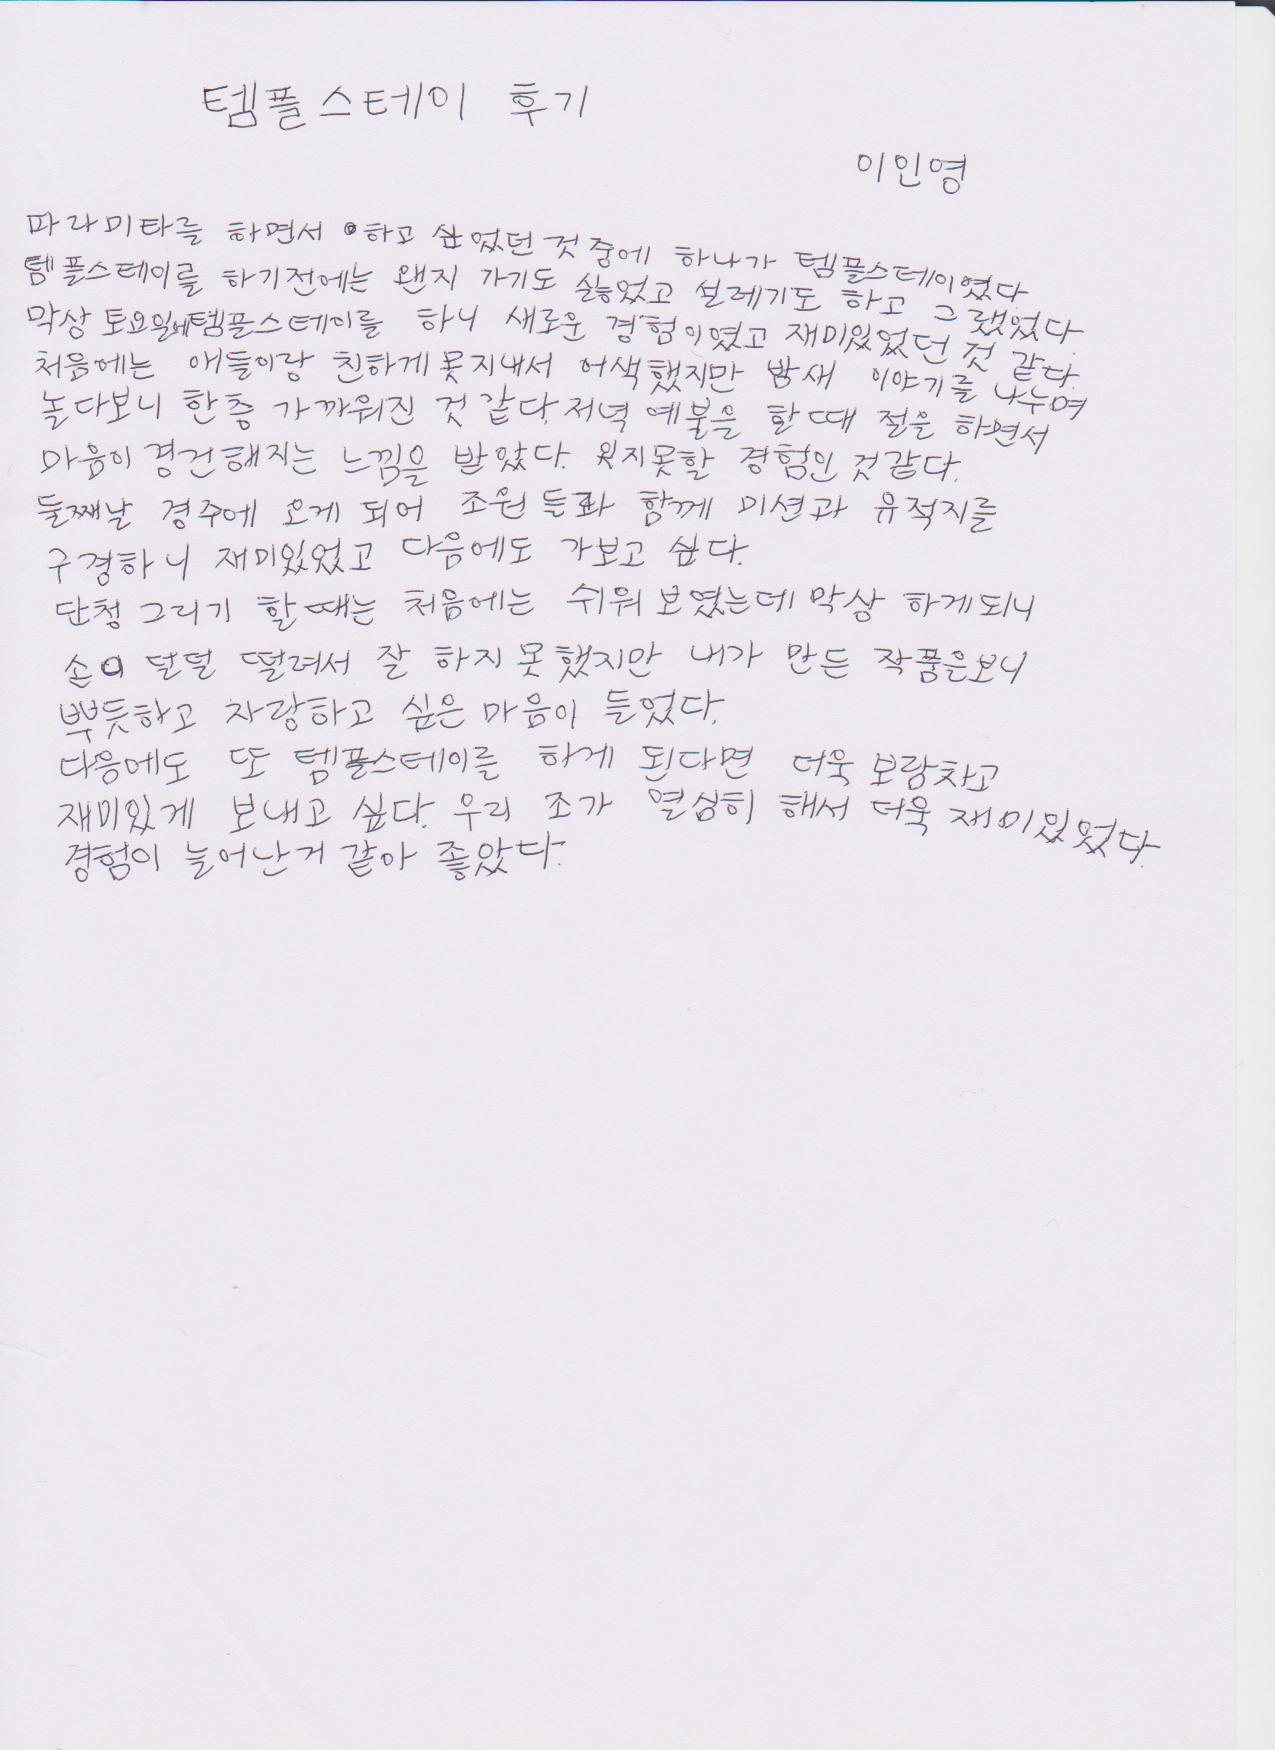 템플스테이 후기
이인영
파라미타를 하면서 하고 싶었던 것 중에 하나가 템플스테이였다
템플스테이를 하기전에는 왠지 가기도 싫었고 설레기도 하고 그랬었다
막상 토요일에 템플스테이를 하니 새로운 경험이였고 재미있었던 것 같다.
처음에는 애들이랑 친하게 못지내서 어색했지만 밤새 이야기를 나누며
놀다보니 한층 가까워진 것 같다. 저녁 예불을 할 때 절을 하면서
마음이 경건해지는 느낌을 받았다. 잊지못할 경험인 것같다.
둘째날 경주에 오게 되어 조원들과 함께 미션과 유적지를
구경하니 재미있었고 다음에도 가보고 싶다.
단청 그리기 할때는 처음에는 쉬워 보였는데 막상 하게되니
손이 덜덜 떨려서 잘 하지 못했지만 내가 만든 작품은보니
뿌듯하고 자랑하고 싶은 마음이 들었다.
다음에도 또 템플스테이를 하게 된다면 더욱 보람차고
재미있게 보내고 싶다. 우리 조가 열심히 해서 더욱 재미있었다.
경험이 늘어난거 같아 좋았다.